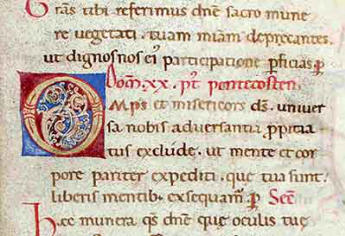 Gras tibi referimus dñe sacro mune
re vegetati. tuam miam deprecantes.
ut dignos nos ei participatione pficias. p
Dom. xx. pt pentecosten
OMps et misericors ds. univer
sa nobis adversantia ppitia
tus exclude. ut mente et cor
pore pariter expediti. que tua sunt.
liberis mentib. exsequam. p Sec
Hec munera qs dñe que oculis tue